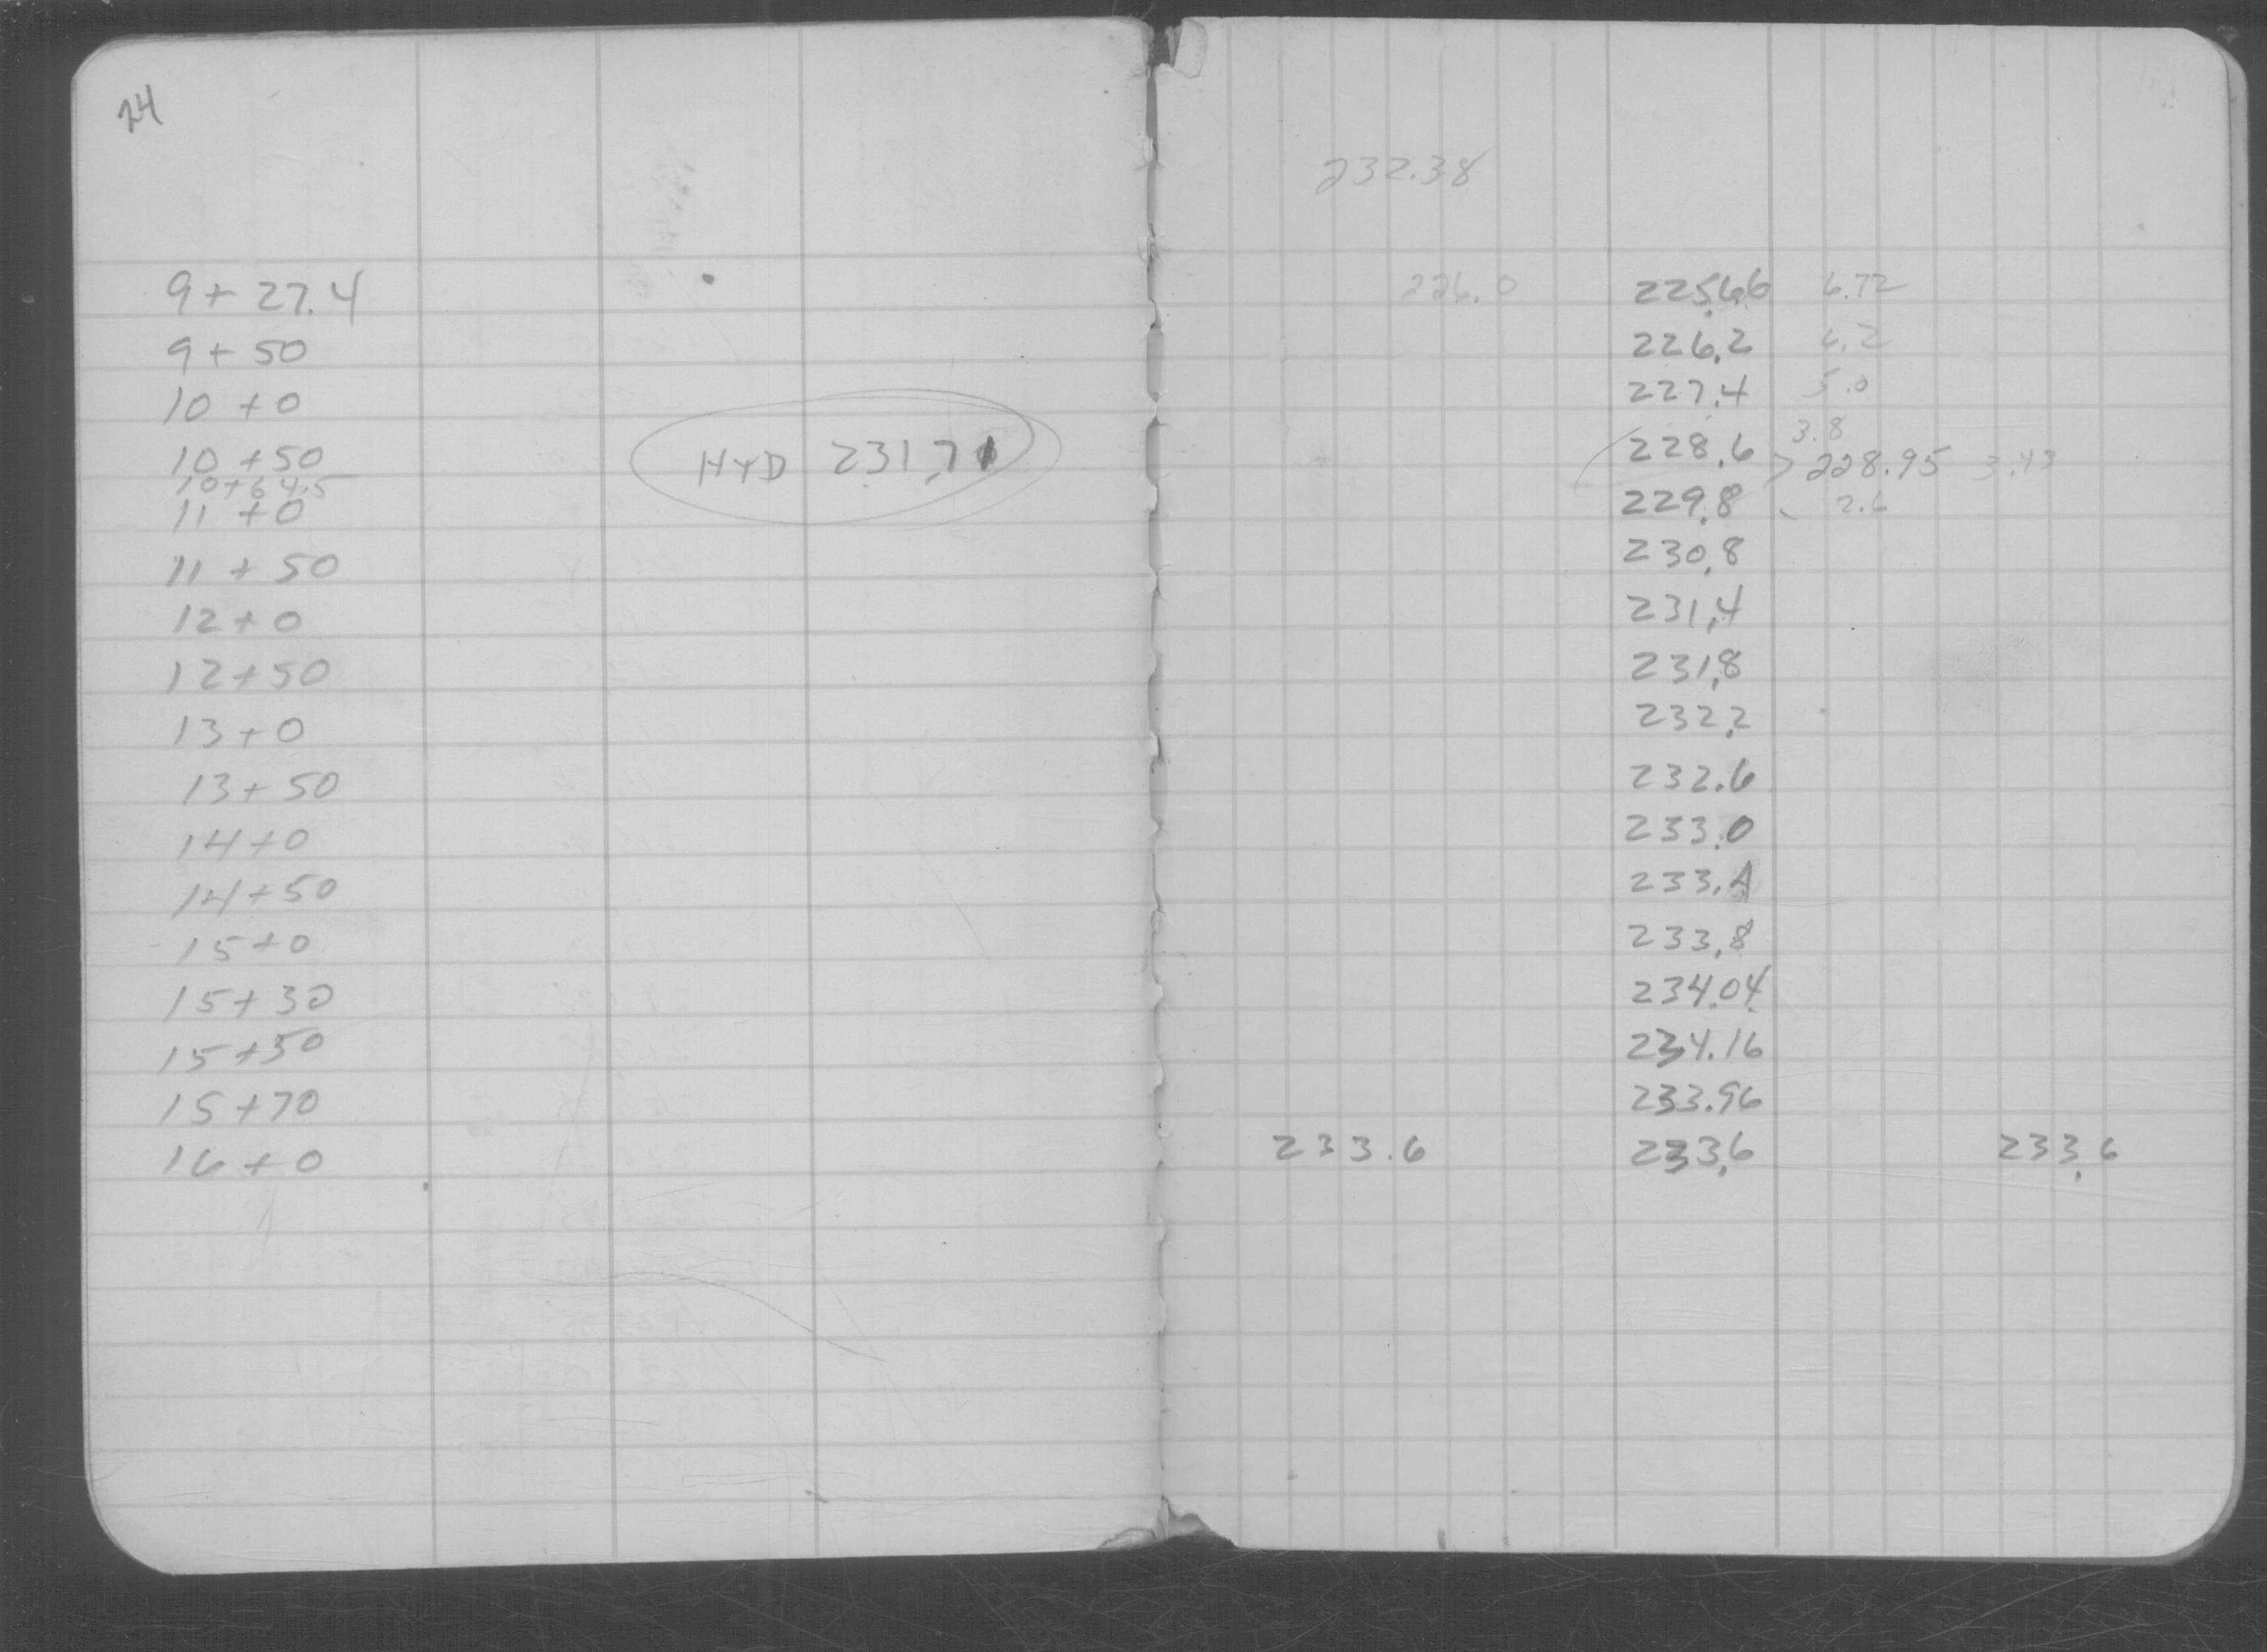 24
232.38
9+27.4 226.0 225.66 6.72
9+50 226.2 6.2
10+0 227.4 5.0
10+50 HYD 231.71 228.6 3.8
10+64.5 228.95 3.43
11+0 229.8 2.6
11+50 230.8
12+0 231.4
12+50 231.8
13+0 232.2
13+50 232.6
14+0 233.0
14+50 233.4
15+0 233.8
15+30 234.04
15+50 234.16
15+70 233.96
16+0 233.6 233.6 233.6